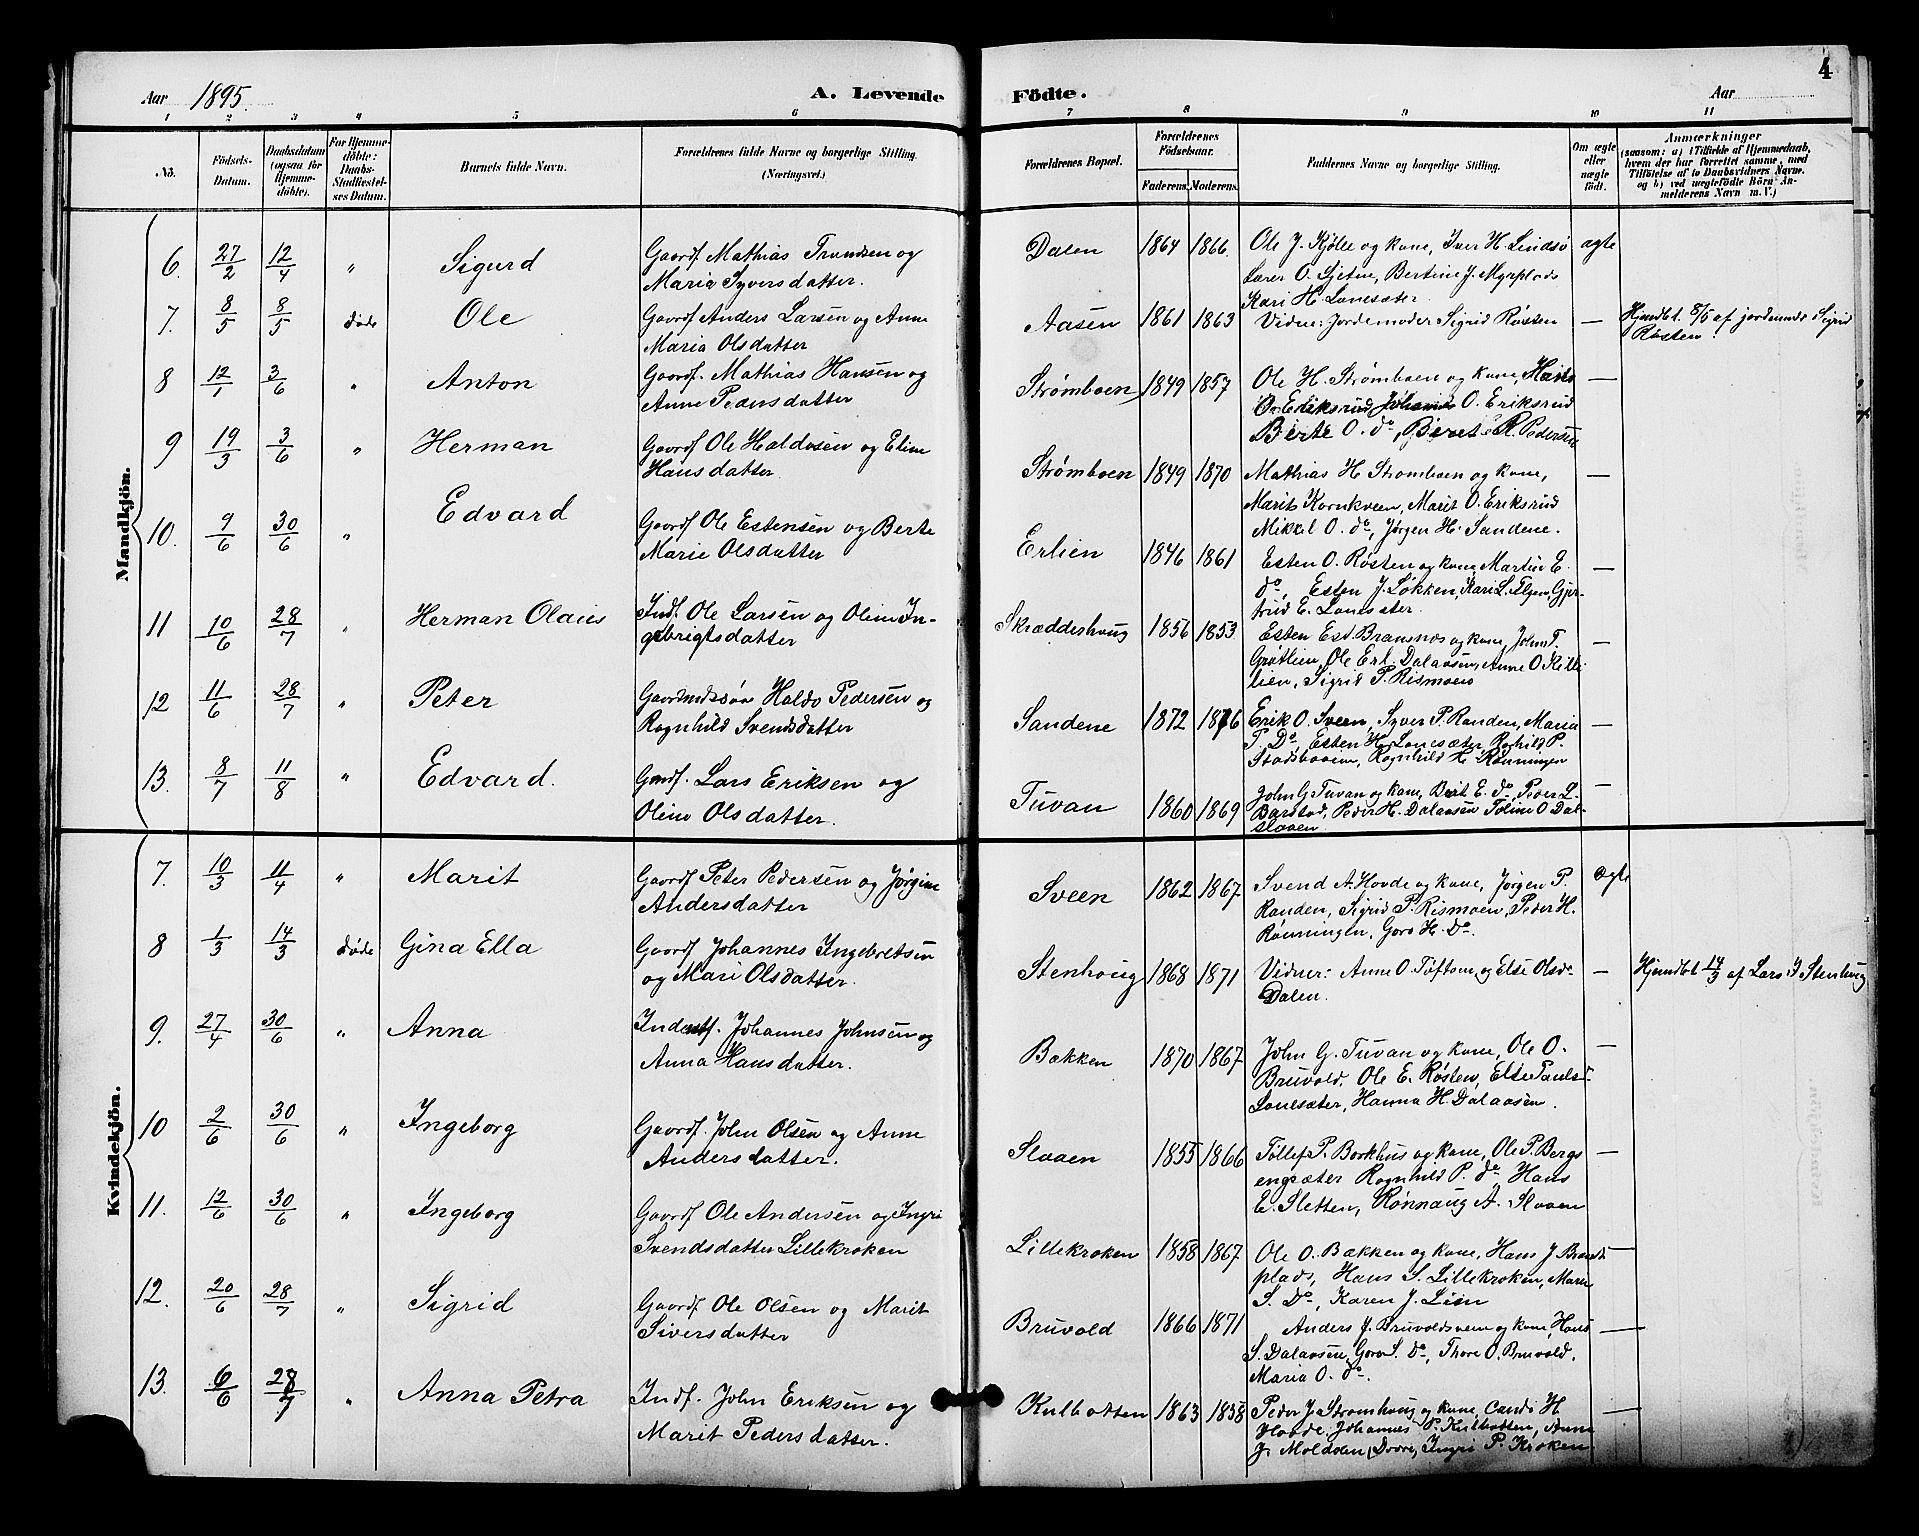 4
Aar 1895. A. Levende Födte. Aar
1 2 3 4 5 6 7 8 9 10 11
No. Födsels-Datum. Daabsdatum (ogsaa for Hjemmedöbte). For Hjemmedöbte: Daabs-Stadfæstelses Datum. Barnets fulde Navn. Forældrenes fulde Navne og borgerlige Stilling. (Næringsvei.) Forældrenes Bopæl. Forældrenes Födselsaar. Faderens. Moderens. Faddernes Navne og borgerlige Stilling. Om ægte eller uægte födt. Anmærkninger (saasom: a) i Tilfælde af Hjemmedaab, hvem der har forrettet samme, med Tilföielse af to Daabsvidners Navne, og b) ved uægtefödte Börn Anmelderens Navn m. V.)
Mandkjön.
6. 27/2 12/4 " Sigurd Gaardf Mathias Trondsen og Maria Syversdatter. Dalen 1864 1866. Ole J. Kjölle og kone, Iver H. Lindsø
Lærer O. Sjetne, Bertine J. Myrplads
Kari H. Lonesæter. ægte
7. 8/5 8/5 døde Ole Gaardf Anders Larsen og Anne
Maria Olsdatter Aasen 1861 1863 Vidne: Jordemoder Sigrid Røsten — Hjmdbt. 8/5 af jordemode Sigrid
Røsten.
8 12/1 3/6 " Anton Gaardf. Mathias Hansen og
Anne Pedersdatter Strømboen 1849 1857 Ole H. Strømboen og kone,
O. Eriksrud, Johannes O. Eriksrud
Berte O. do, Beret R. Pedersen —
9 19/3 3/6 " Herman Gaardf Ole Haldosen og Eline
Hansdatter. Strømboen 1849 1870 Mathias H. Strømboen og kone,
Marit Kornkveen, Marit O. Eriksrud
Mikkel O. do, Jørgen H. Sandene. —
10. 9/6 30/6 " Edvard Gaardf Ole Estensen og Berte
Marie Olsdatter Erlien 1846 1861 Esten O. Røsten og kone, Martin E.
do, Esten J. Løkken, Kari L. Elgen, Gjer-
trud E. Lonesæter. —
11 10/6 28/7 " Herman Olaus Indf. Ole Larsen og Oline In-
gebrigtsdatter Skrædderhoug 1856 1853. Esten Esd. Bransnes og kone, John T.
Grøtlien, Ole Erl. Dalaasen, Anne O. Kill-
lien, Sigrid P. Rismoen —
12 11/6 28/7 " Peter Gaardmandssøn Haldo Pedersen og
Ragnhild Svendsdatter Sandene 1872 1876 Erik O. Sveen, Syver P. Randen, Maria
T. Do, Esten H. Lonesæter, Raghild P.
Stadsboeien, Ragnhild H. Rønningen —
13. 8/7 11/8 " Edvard. Gaardf. Lars Eriksen og
Oline Olsdatter. Tuvan 1860 1869 John G. Tuvan og kone, Brit E. do, Peder L.
Barstad, Peder H. Dalaasen Toline O. Dal-
slaaen —
Kvindekjön.
7. 10/3 11/4 " Marit Gaardf Peter Pedersen og Jørgine
Andersdatter Sveen 1862 1867. Svend A. Hovde og kone, Jørgen P.
Randen, Sigrid P. Rismoen, Peder H.
Rønningen, Goro H. Do. ægte
8 1/3 14/3 døde Gina Ella Gaardf Johannes Ingebretsen
og Mari Olsdatter. Stenhoug 1868 1871 Vidner: Anne O. Toftom, og Else Olsd-
Dalen. — Hjmdbt 14/3 af Lars I Stenhoug
9. 27/4 30/6 " Anna Inderstf. Johannes Johnsen og
Anna Hansdatter. Bækken 1870 1867. John G. Tuvan og kone, Ole O.
Bruvold, Ole E. Røsten, Else Paulsd-
Lonesæter, Hanna H. Dalaasen. —
10 2/6 30/6 " Ingeborg Gaardf. John Olsen og Anne
Andersdatter. Slaaen 1855 1866 Tollef P. Borkhus og kone, Ole P. Bergs
engsæter Ragnhild P. do, Hans
E. Sletten, Rønnaug A. Slaaen —
11. 12/6 30/6 " Ingeborg Gaardf Ole Andersen og Ingri
Svendsdatter Lillekroken Lillekroken 1858 1867. Ole O. Bækken og kone, Hans J. Brænd-
plads, Hans S. Lillekroken, Mari
S. Do, Karen J. Lien —
12. 20/6 28/7 " Sigrid Gaardf Ole Olsen og Marit
Siversdatter Bruvold 1866 1871 Anders J. Bruvoldsveen og kone, Hans
S. Dalaasen, Goro S. do, Thore O. Bruvold,
Maria O. do. —
13. 6/6 28/7 " Anna Petra Indf. John Eriksen og
Marit Pedersdatter. Kulbotten 1863 1858 Peder J. Stromhoug og kone, H
Hovde, Johannes P. Kulbotten, Anne
J. Moldalen, Dovre, Ingri P. Kroken —